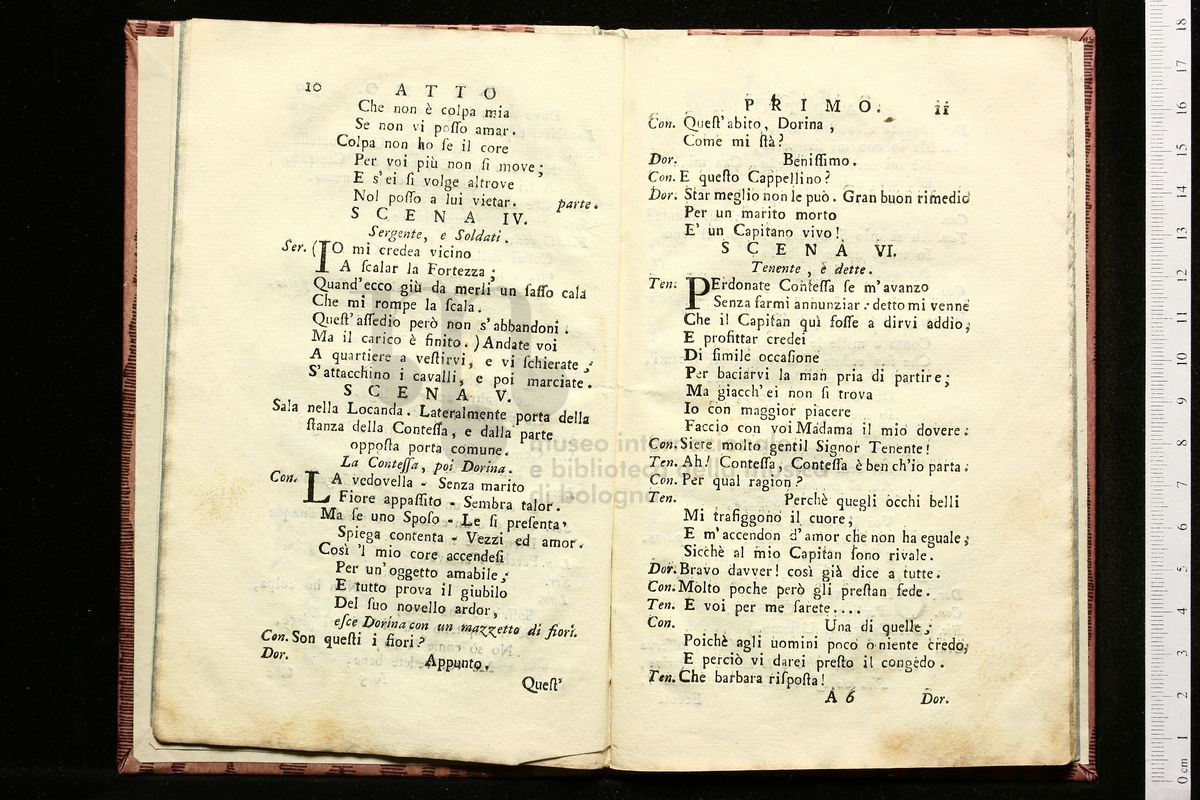 10 ATTO
Che non è colpa mia
Se non vi poſſo amar.
Colpa non ho ſe il core
Per voi più non ſi move;
E s'ei ſi volge altrove
Nol poſſo a lui vietar. parte.
SCENA IV.
Sergente, e Soldati.
Ser. (IO mi credea vicino
A ſcalar la Fortezza;
Quand'ecco giù da merli un ſaſſo cala
Che mi rompe la ſcala.
Queſt'aſſedio però non s'abbandoni.
Ma il carico è finito.) Andate voi
A quartiere a veſtirvi, e vi ſchierate;
S'attacchino i cavalli, e poi marciate.
SCENA V.
Sala nella Locanda. Lateralmente porta della
ſtanza della Conteſſa, e dalla parte
oppoſta porta comune.
La Conteſſa, poi Dorina.
Con. LA vedovella - Senza marito
Fiore appaſſito - Sembra talor.
Ma ſe uno Spoſo - Le ſi preſenta,
Spiega contenta - Vezzi ed amor.
Così 'l mio core accendeſi
Per un'oggetto amabile;
E tutto prova il giubilo
Del ſuo novello ardor,
eſce Dorina con un mazzetto di fiori.
Con. Son queſti i fiori?
Dor. Appunto.
Queſt'
PRIMO. 11
Con. Queſt'abito, Dorina,
Come mi ſtà?
Dor. Beniſſimo.
Con. E queſto Cappellino?
Dor. Star meglio non le può. Gran buon rimedio
Per un marito morto
E' un Capitano vivo!
SCENA VI.
Tenente, e dette.
Ten. PErdonate Conteſſa ſe m'avanzo
Senza farmi annunziar: detto mi venne
Che il Capitan quì foſſe a dirvi addio;
E profittar credei
Di ſimile occaſione
Per baciarvi la man pria di partire;
Ma giacch'ei non ſi trova
Io con maggior piacere
Faccio con voi Madama il mio dovere.
Con. Siete molto gentil Signor Tenente!
Ten. Ah! Conteſſa, Conteſſa è ben ch'io parta.
Con. Per qual ragion?
Ten. Perchè quegli occhi belli
Mi trafiggono il cuore,
E m'accendon d'amor che non ha eguale;
Sicchè al mio Capitan ſono rivale.
Dor. Bravo davver! così già dice a tutte.
Con. Molto poche però gli preſtan fede.
Ten. E voi per me ſarete....
Con. Una di quelle;
Poichè agli uomini poco o niente credo,
E perciò vi darei preſto il congedo.
Ten. Che barbara riſpoſta!
A 6 Dor.
museo internazionale
e biblioteca della musica
di bologna
0 cm 1 2 3 4 5 6 7 8 9 10 11 12 13 14 15 16 17 18